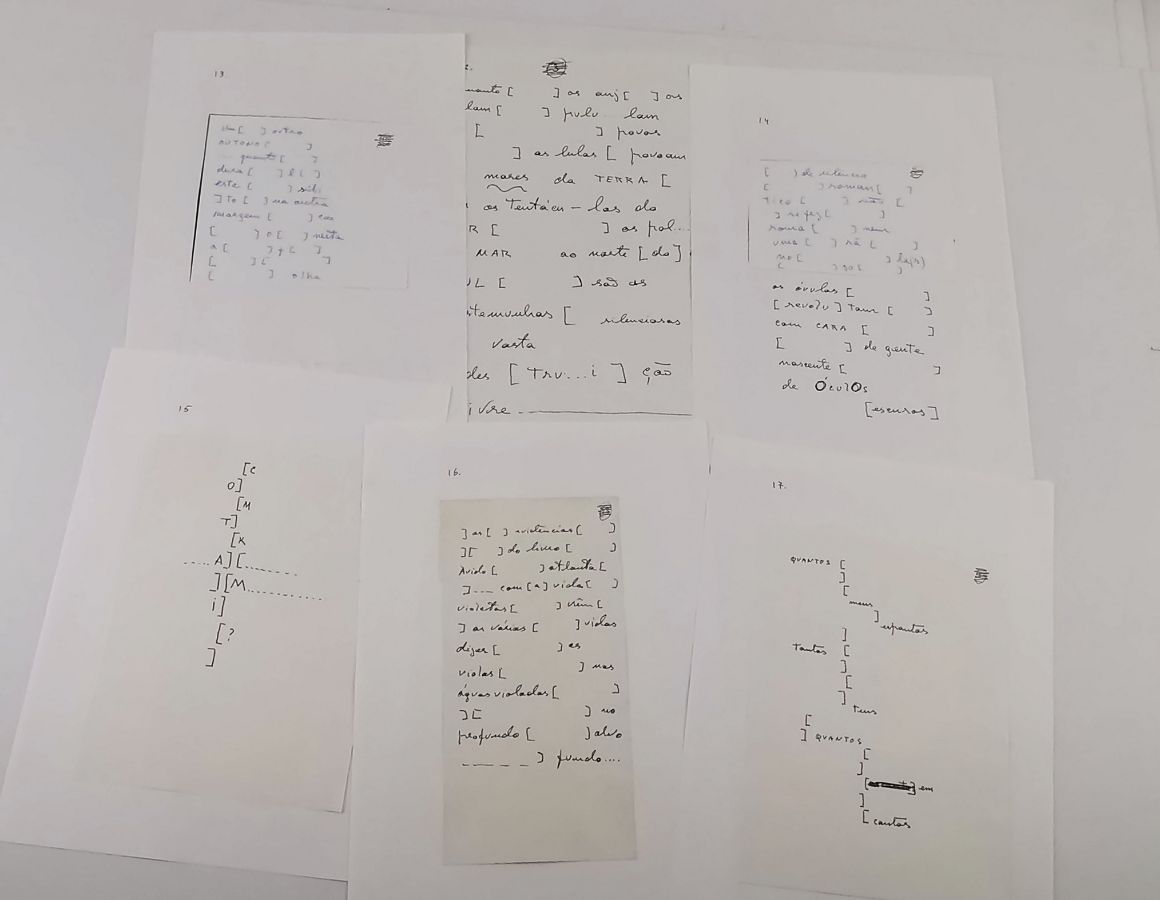 13.
[ ] outro
OUTONO [ ]
quanto [ ]
dura [ ] l [ ]
este [ ]
] To [ ] na outra
margem [ ] em
[ ] o [ ] nesta
a [ ] + [ ]
[ ] [ ]
[ ] olha
[ ] as anj [ ] os
lam [ ] pulu lam
[ ] povos
] as lulas [ povoam
mares da TERRA [
os Tentácu – los do
R [ ] os pol...
MAR ao norte [do]
UL [ ] são as
stemunhas [ silenciosas
vasta
des [ Tru...i ] ção
ivre
14
[ ] de silêncio
[ ] roman [ ]
Tico [ ] não [
] se fez [ ]
rouca [ ] nem
uma [ ] rã [ ]
no [ ]
[ ] go [ ]
os óvulos [ ]
[ revolu ] Tam [ ]
com CARA [ ]
[ ] de gente
nascente [ ]
de ÓculOs
[escuros]
15
[C
O]
[M
T]
[K
..... A] [..........
] [M..............
i]
[?
]
16.
] as [ ] evidências [ ]
] [ ] do livro [ ]
Ávido [ ] atlanta [
]... com [a] vida [ ]
violetas [ ] vêm [
] as várias [ ] vidas
dizer [ ] es
violas [ ] nas
águas violadas [ ]
] [ ] no
profundo [ ] alvo
_ _ _ _ _ ] fundo....
17.
QUANTOS [
]
[
meus
] espantos
]
Tantos [
]
[
]
teus
[
] QUANTOS
[
]
[ ] em
]
[ cantos